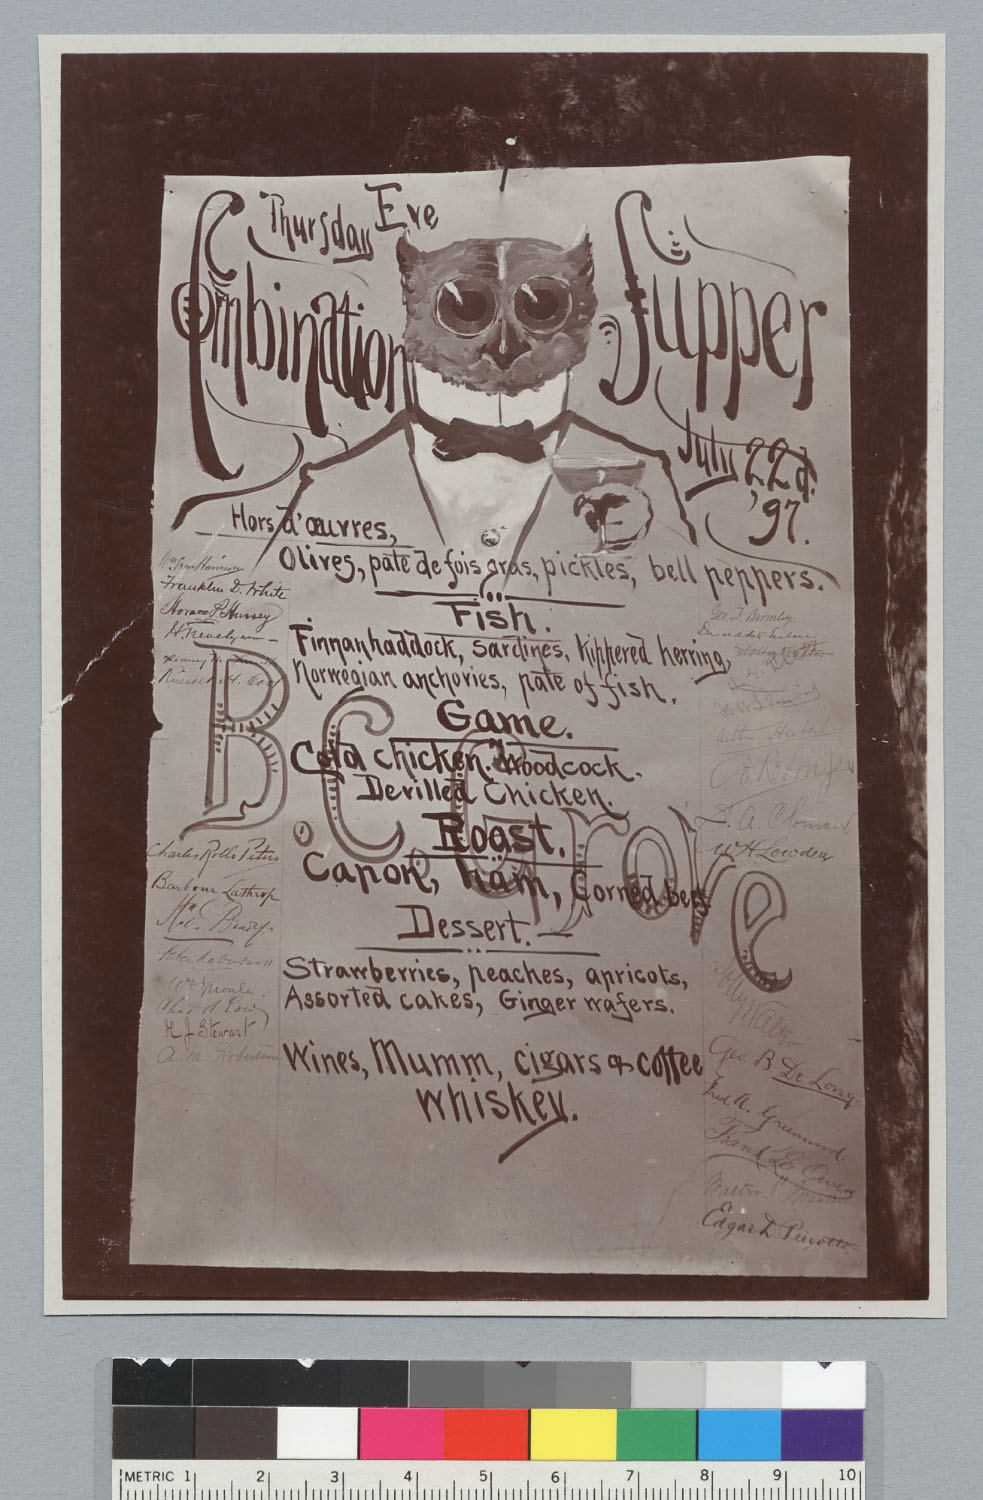 Thursday Eve
Combination Supper
July 22d.
'97.
Hors d'œuvres,
Olives, pate de fois gras, pickles, bell peppers.
Fish.
Finnanhaddock, sardines, Kippered herring,
Norwegian anchovies, pate of fish.
Game.
Cold chicken. Woodcock.
Devilled Chicken.
Roast.
Capon, ham, Corned beef
Dessert.
Strawberries, peaches, apricots,
Assorted cakes, Ginger wafers.
Wines, Mumm, cigars & coffee
whiskey.
B.C. Grove
Franklin D. White
Horace P. Hussey
Charles Rollo Peters
Barbour Lathrop
H J Stewart
A. M. Robertson
Geo. T. Bromley
W H Lowden
Geo B De Long
Frank L. Owen
Edgar D. Peixotto
METRIC 1 2 3 4 5 6 7 8 9 10